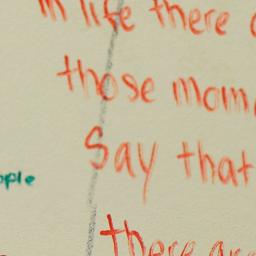 in life there
those mom
Say that
ople
there are